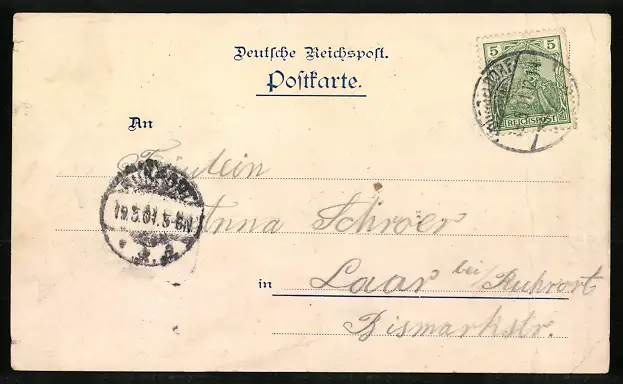 Deutsche Reichspost.
Postkarte.
5 5
REICHSPOST
An
Fräulein
Anna Schroer
19.5.01.5-6N
in Laar bei Ruhrort
Bismarkstr.